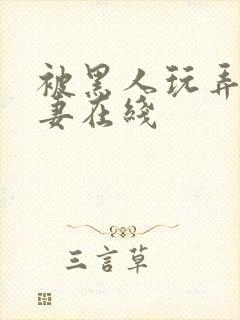 被黑人玩弄
妻在綫
三言草